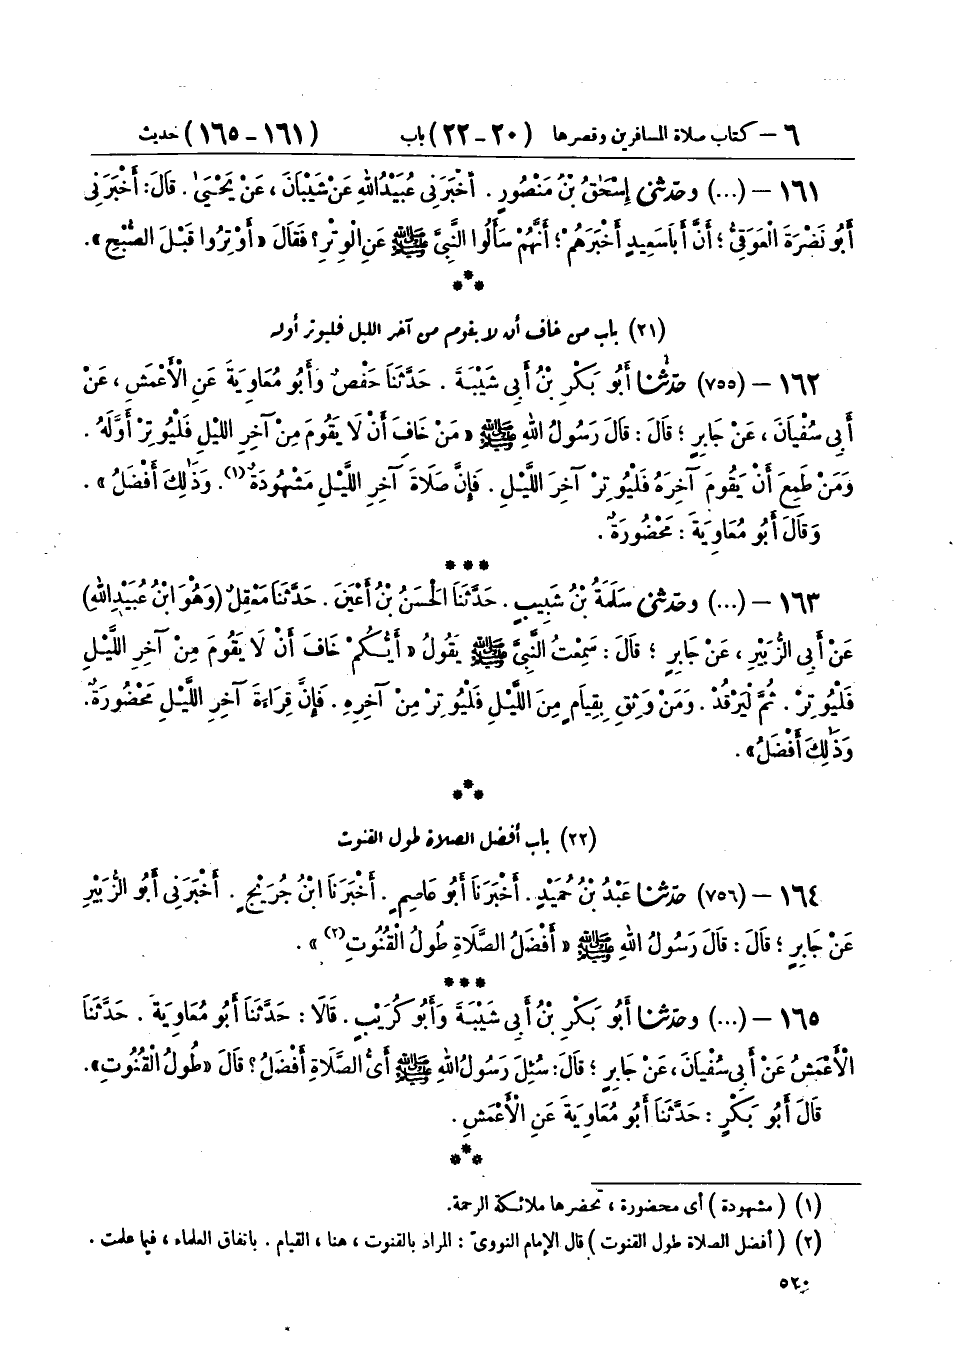 ٦ – كتاب صلاة المسافرين وقصرها (٢٠ – ٢٢) باب (١٦١ – ١٦٥) حديث
١٦١ – (...) وحدثنى إِسْحَٰقُ بْنُ مَنْصُورٍ. أَخْبَرَنِى عُبَيْدُاللهِ عَنْ شَيْبَانَ، عَنْ يَحْيَىٰ. قَالَ: أَخْبَرَنِى
أَبُو نَضْرَةَ الْعَوَقِىُّ؛ أَنَّ أَبَا سَعِيدٍ أَخْبَرَهُمْ؛ أَنَّهُمْ سَأَلُوا النَّبِىَّ ﷺ عَنِ الْوِتْرِ؟ فَقَالَ «أَوْتِرُوا قَبْلَ الصُّبْحِ».
***
(٢١) باب من خاف أن لا يقوم من آخر الليل فليوتر أوله
١٦٢ – (٧٥٥) حدّثنا أَبُو بَكْرِ بْنُ أَبِى شَيْبَةَ. حَدَّثَنَا حَفْصٌ وَأَبُو مُعَاوِيَةَ عَنِ الْأَعْمَشِ، عَنْ
أَبِى سُفْيَانَ، عَنْ جَابِرٍ؛ قَالَ: قَالَ رَسُولُ اللهِ ﷺ «مَنْ خَافَ أَنْ لَا يَقُومَ مِنْ آخِرِ اللَّيْلِ فَلْيُوتِرْ أَوَّلَهُ.
وَمَنْ طَمِعَ أَنْ يَقُومَ آخِرَهُ فَلْيُوتِرْ آخِرَ اللَّيْلِ. فَإِنَّ صَلَاةَ آخِرِ اللَّيْلِ مَشْهُودَةٌ(١). وَذَٰلِكَ أَفْضَلُ».
وَقَالَ أَبُو مُعَاوِيَةَ: مَحْضُورَةٌ.
***
١٦٣ – (...) وحدثنى سَلَمَةُ بْنُ شَبِيبٍ. حَدَّثَنَا الْحَسَنُ بْنُ أَعْيَنَ. حَدَّثَنَا مَعْقِلٌ (وَهُوَ ابْنُ عُبَيْدِاللهِ)
عَنْ أَبِى الزُّبَيْرِ، عَنْ جَابِرٍ؛ قَالَ: سَمِعْتُ النَّبِىَّ ﷺ يَقُولُ «أَيُّكُمْ خَافَ أَنْ لَا يَقُومَ مِنْ آخِرِ اللَّيْلِ
فَلْيُوتِرْ. ثُمَّ لْيَرْقُدْ. وَمَنْ وَثِقَ بِقِيَامٍ مِنَ اللَّيْلِ فَلْيُوتِرْ مِنْ آخِرِهِ. فَإِنَّ قِرَاءَةَ آخِرِ اللَّيْلِ مَحْضُورَةٌ.
وَذَٰلِكَ أَفْضَلُ».
***
(٢٢) باب أفضل الصلاة طول القنوت
١٦٤ – (٧٥٦) حدّثنا عَبْدُ بْنُ حُمَيْدٍ. أَخْبَرَنَا أَبُو عَاصِمٍ. أَخْبَرَنَا ابْنُ جُرَيْجٍ. أَخْبَرَنِى أَبُو الزُّبَيْرِ
عَنْ جَابِرٍ؛ قَالَ: قَالَ رَسُولُ اللهِ ﷺ «أَفْضَلُ الصَّلَاةِ طُولُ الْقُنُوتِ(٢)».
***
١٦٥ – (...) وحدّثنا أَبُو بَكْرِ بْنُ أَبِى شَيْبَةَ وَأَبُو كُرَيْبٍ. قَالَا: حَدَّثَنَا أَبُو مُعَاوِيَةَ. حَدَّثَنَا
الْأَعْمَشُ عَنْ أَبِى سُفْيَانَ، عَنْ جَابِرٍ؛ قَالَ: سُئِلَ رَسُولُ اللهِ ﷺ أَىُّ الصَّلَاةِ أَفْضَلُ؟ قَالَ «طُولُ الْقُنُوتِ».
قَالَ أَبُو بَكْرٍ: حَدَّثَنَا أَبُو مُعَاوِيَةَ عَنِ الْأَعْمَشِ.
***
(١) (مشهودة) أى محضورة، تحضرها ملائكة الرحمة.
(٢) (أفضل الصلاة طول القنوت) قال الإمام النووىّ: المراد بالقنوت، هنا، القيام. باتفاق العلماء، فيما علمت.
٥٢٠